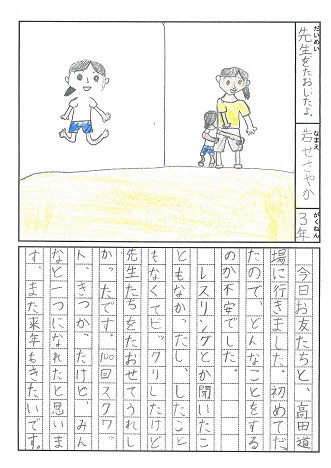 だいめい
先生をたおしたよ。
なまえ
岩せさやか
がくねん
3年
今日お友だちと、高田道
場に行きました。初めてだっ
たので、どんなことをする
のか不安でした。
レスリングとか聞いたこ
ともなかったし、したこと
もなくてビックリしたけど
先生たちをたおせてうれし
かったです。100回スクワッ
ト、きつかったけど、みん
なと一つになれたと思いま
す。また来年もきたいです。